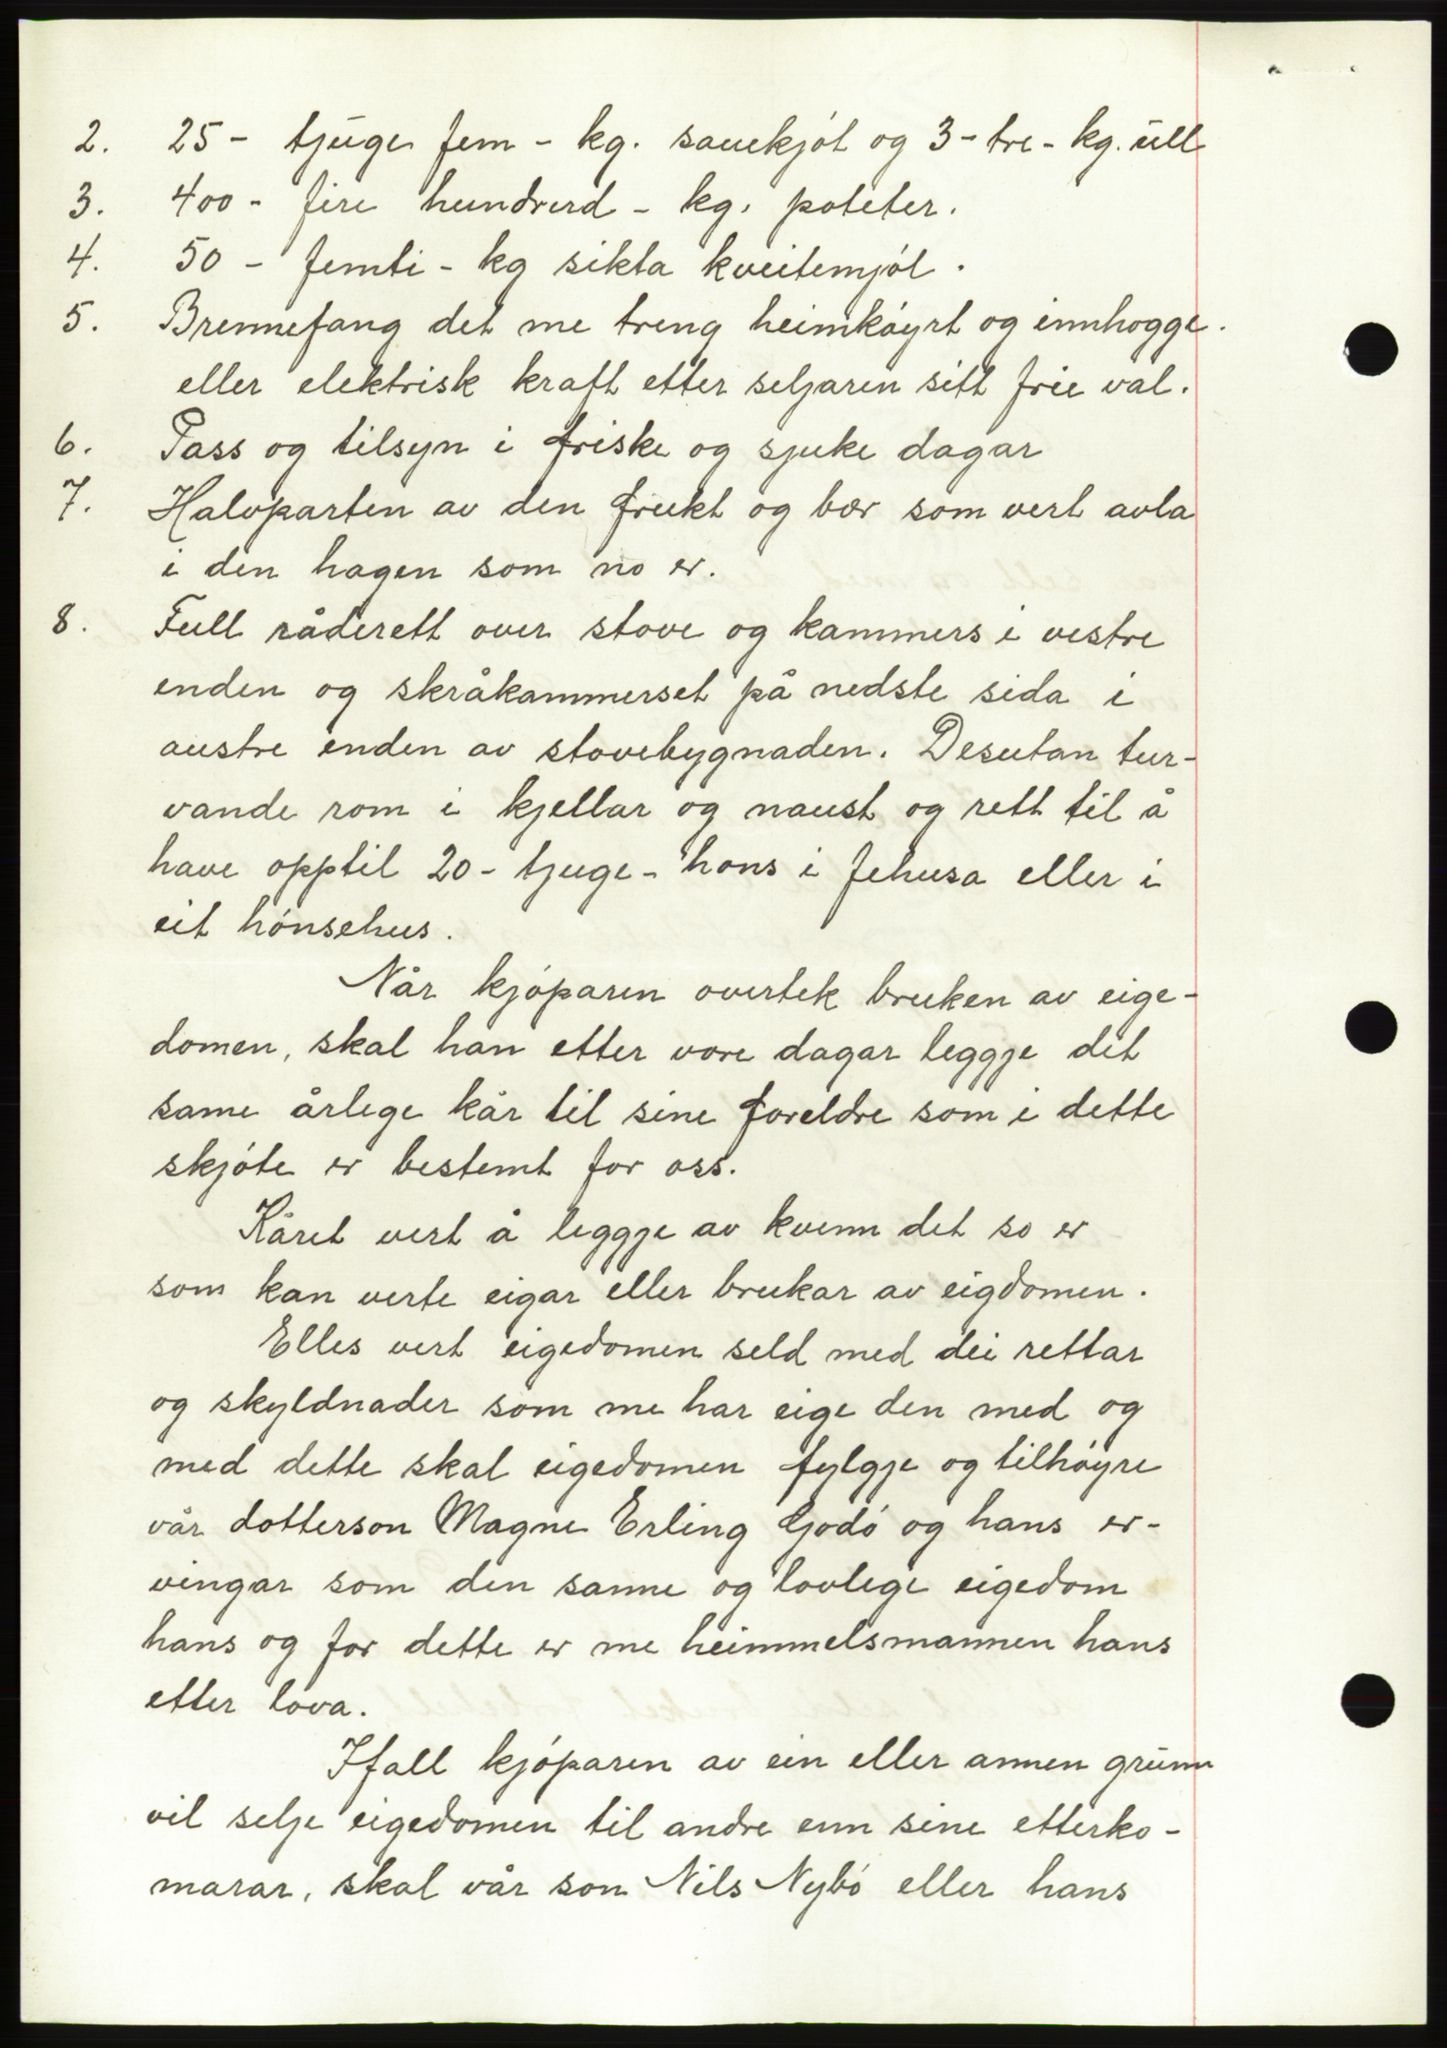 2. 25 - tjuge fem - kg. sauekjöt og 3 - tre - kg. ull
3. 400 - fire hundrerd - kg. poteter.
4. 50 - femti - kg sikta kveitemjöl.
5. Brennefang det me treng heimköyrt og innhogge.
eller elektrisk kraft etter seljaren sitt frie val.
6. Pass og tilsyn i friske og sjuke dagar
7. Halvparten av den frukt og bær som vert avla
i den hagen som no er.
8. Full råderett over stove og kammers i vestre
enden og skråkammerset på nedste sida i
austre enden av stovebygnaden. Desutan tur-
vande rom i kjellar og naust og rett til å
have opptil 20 - tjuge - höns i fehusa eller i
eit hönsehus.
Når kjöparen overtek bruken av eige-
domen, skal han etter vore dagar leggje det
same årlege kår til sine foreldre som i dette
skjöte er bestemt for oss.
Kåret vert å leggje av kvenn det so er
som kan verte eigar eller brukar av eigdomen.
Elles vert eigedomen seld med dei rettar
og skyldnader som me har eige den med og
med dette skal eigedomen fylgje og tilhöyre
vår dotterson Magne Erling Godö og hans er-
vingar som den sanne og lovlege eigedom
hans og for dette er me heimmelsmannen hans
etter lova.
Ifall kjöparen av ein eller annen grunn
vil selje eigedomen til andre enn sine etterko-
marar, skal vår son Nils Nybö eller hans